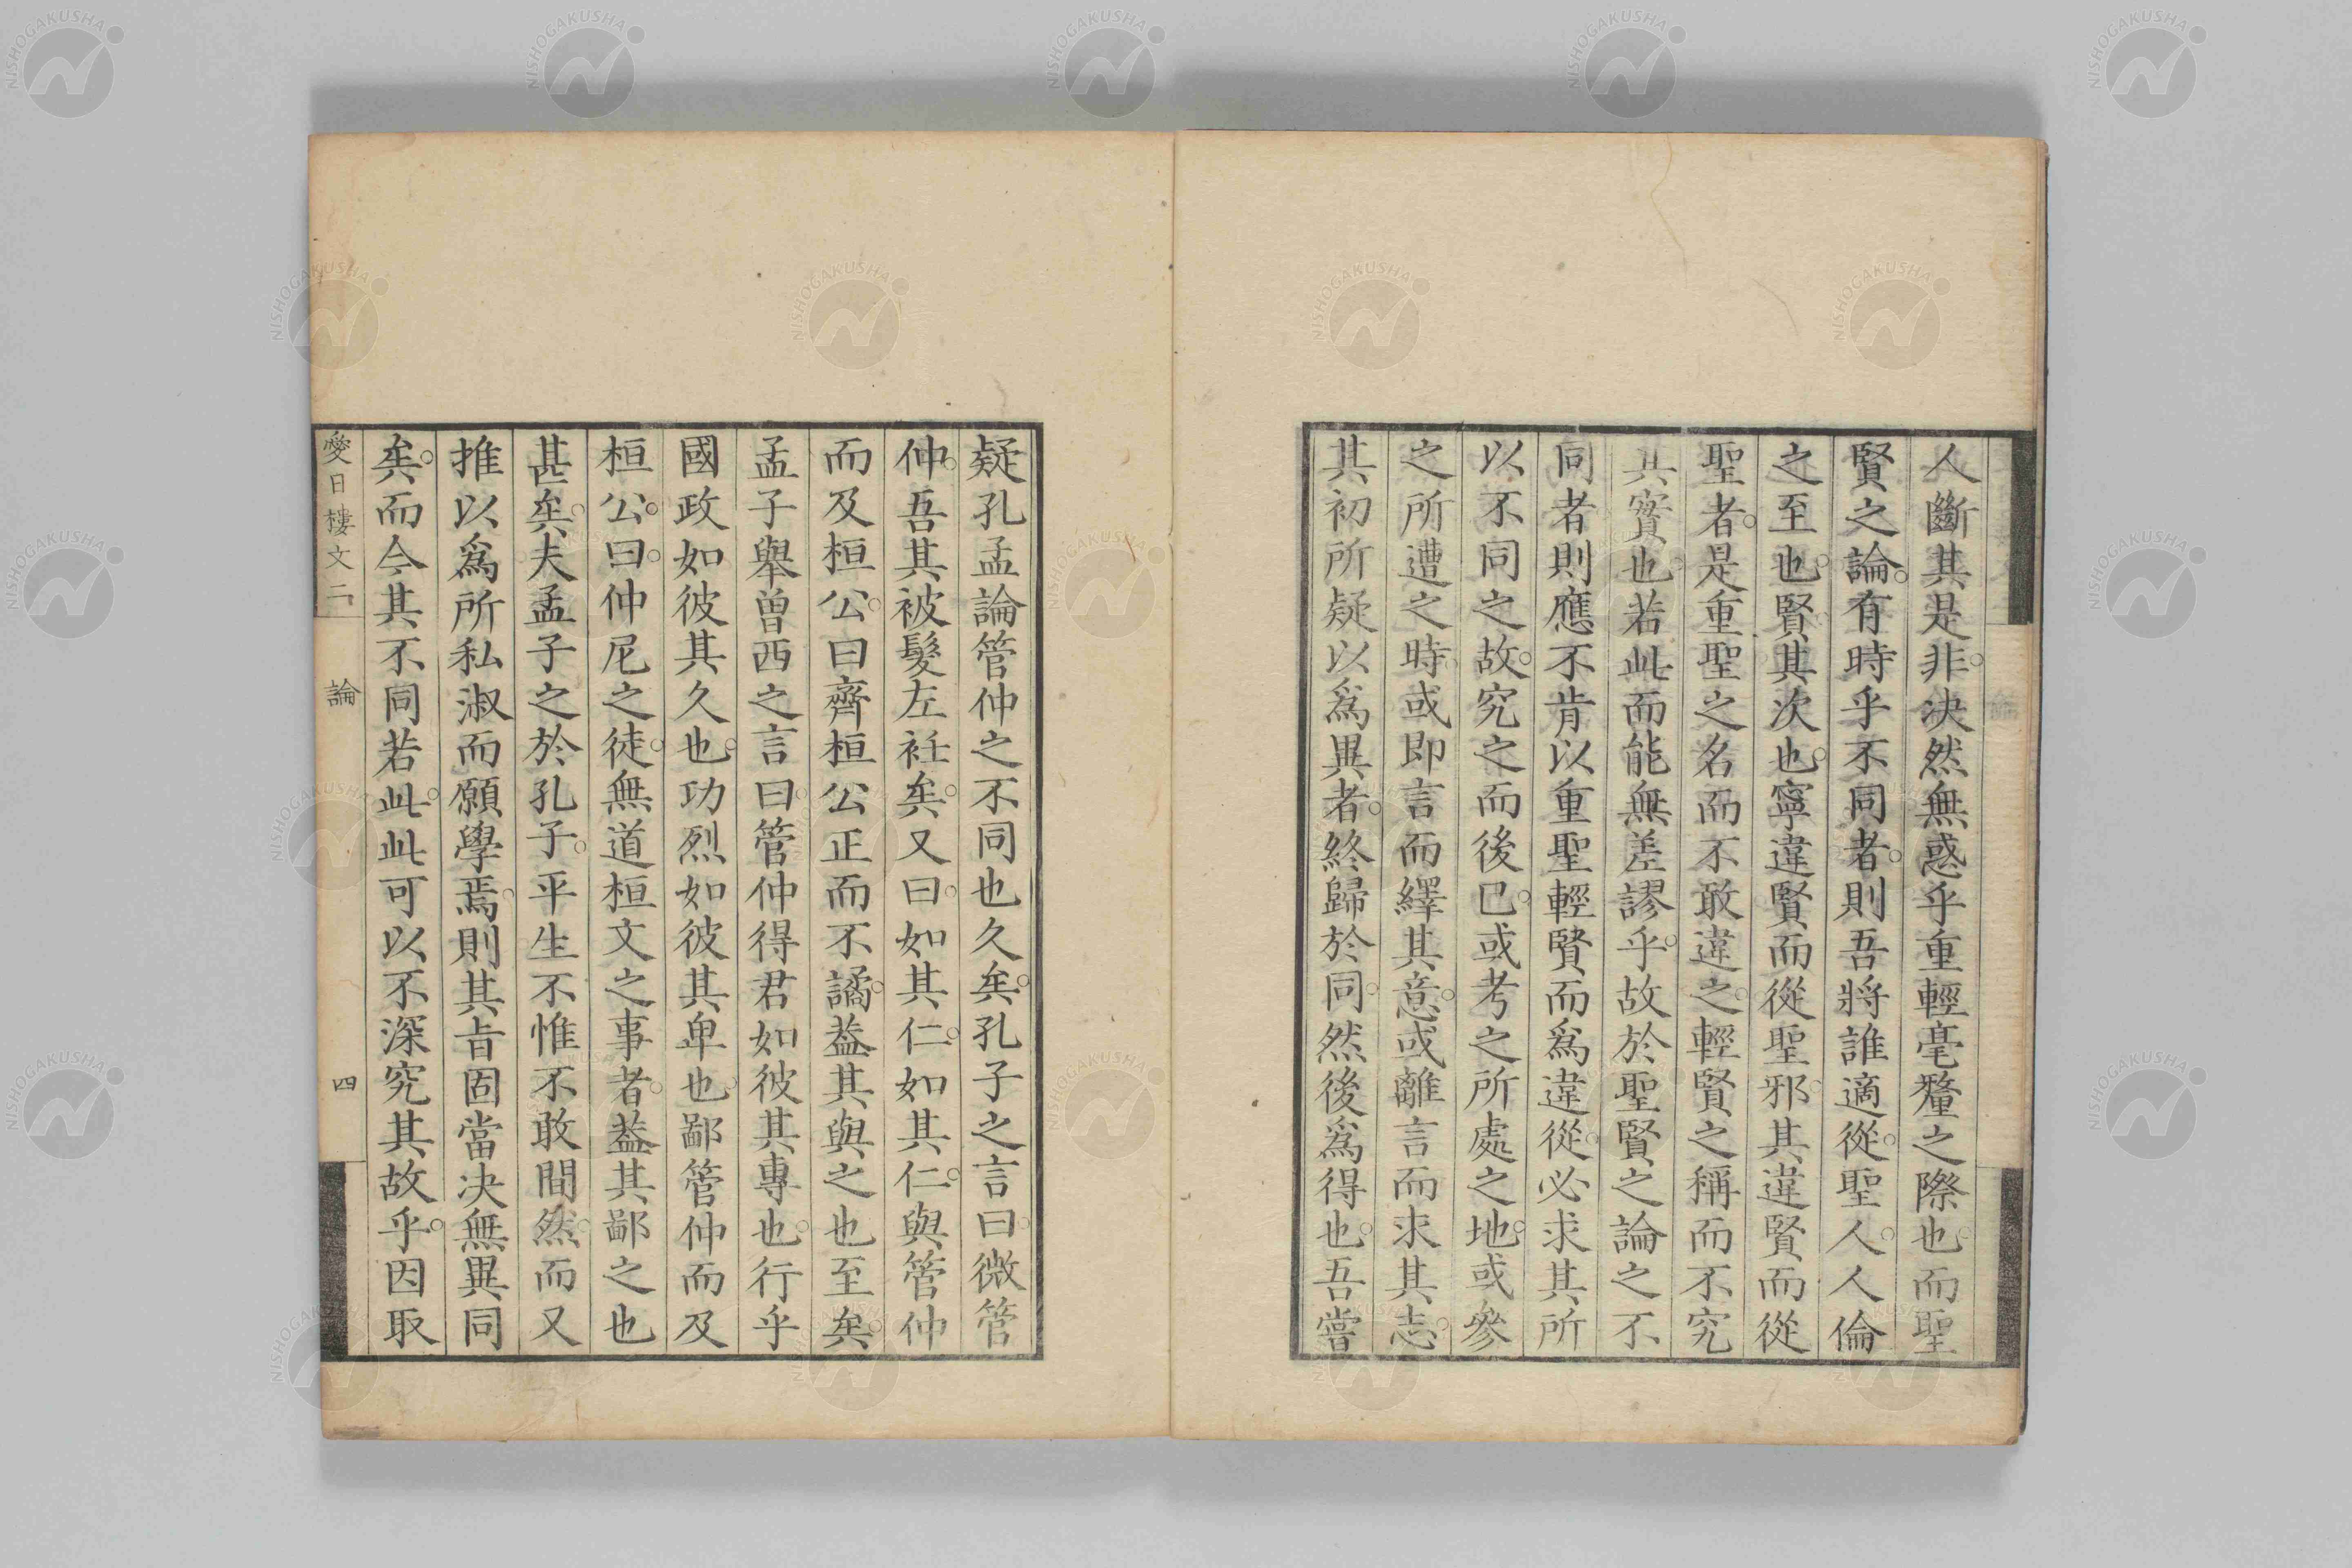 人斷其是非決然無惑乎重輕毫釐之際也而聖
賢之論有時乎不同者則吾將誰適從聖人人倫
之至也賢其次也寧違賢而從聖邪其違賢而從
聖者是重聖之名而不敢違之輕賢之稱而不究
其實也若此而能無差謬乎故於聖賢之論之不
同者則應不肯以重聖輕賢而爲違從必求其所
以不同之故究之而後已或考之所處之地或參
之所遭之時或即言而繹其意或離言而求其志
其初所疑以爲異者終歸於同然後爲得也吾嘗
疑孔孟論管仲之不同也久矣孔子之言曰微管
仲吾其被髮左衽矣又曰如其仁如其仁與管仲
而及桓公曰齊桓公正而不譎蓋其與之也至矣
孟子舉曾西之言曰管仲得君如彼其專也行乎
國政如彼其久也功烈如彼其卑也鄙管仲而及
桓公曰仲尼之徒無道桓文之事者蓋其鄙之也
甚矣夫孟子之於孔子平生不惟不敢間然而又
推以爲所私淑而願學焉則其旨固當決無異同
矣而今其不同若此此可以不深究其故乎因取
愛日樓文二 論 四
NISHOGAKUSHA